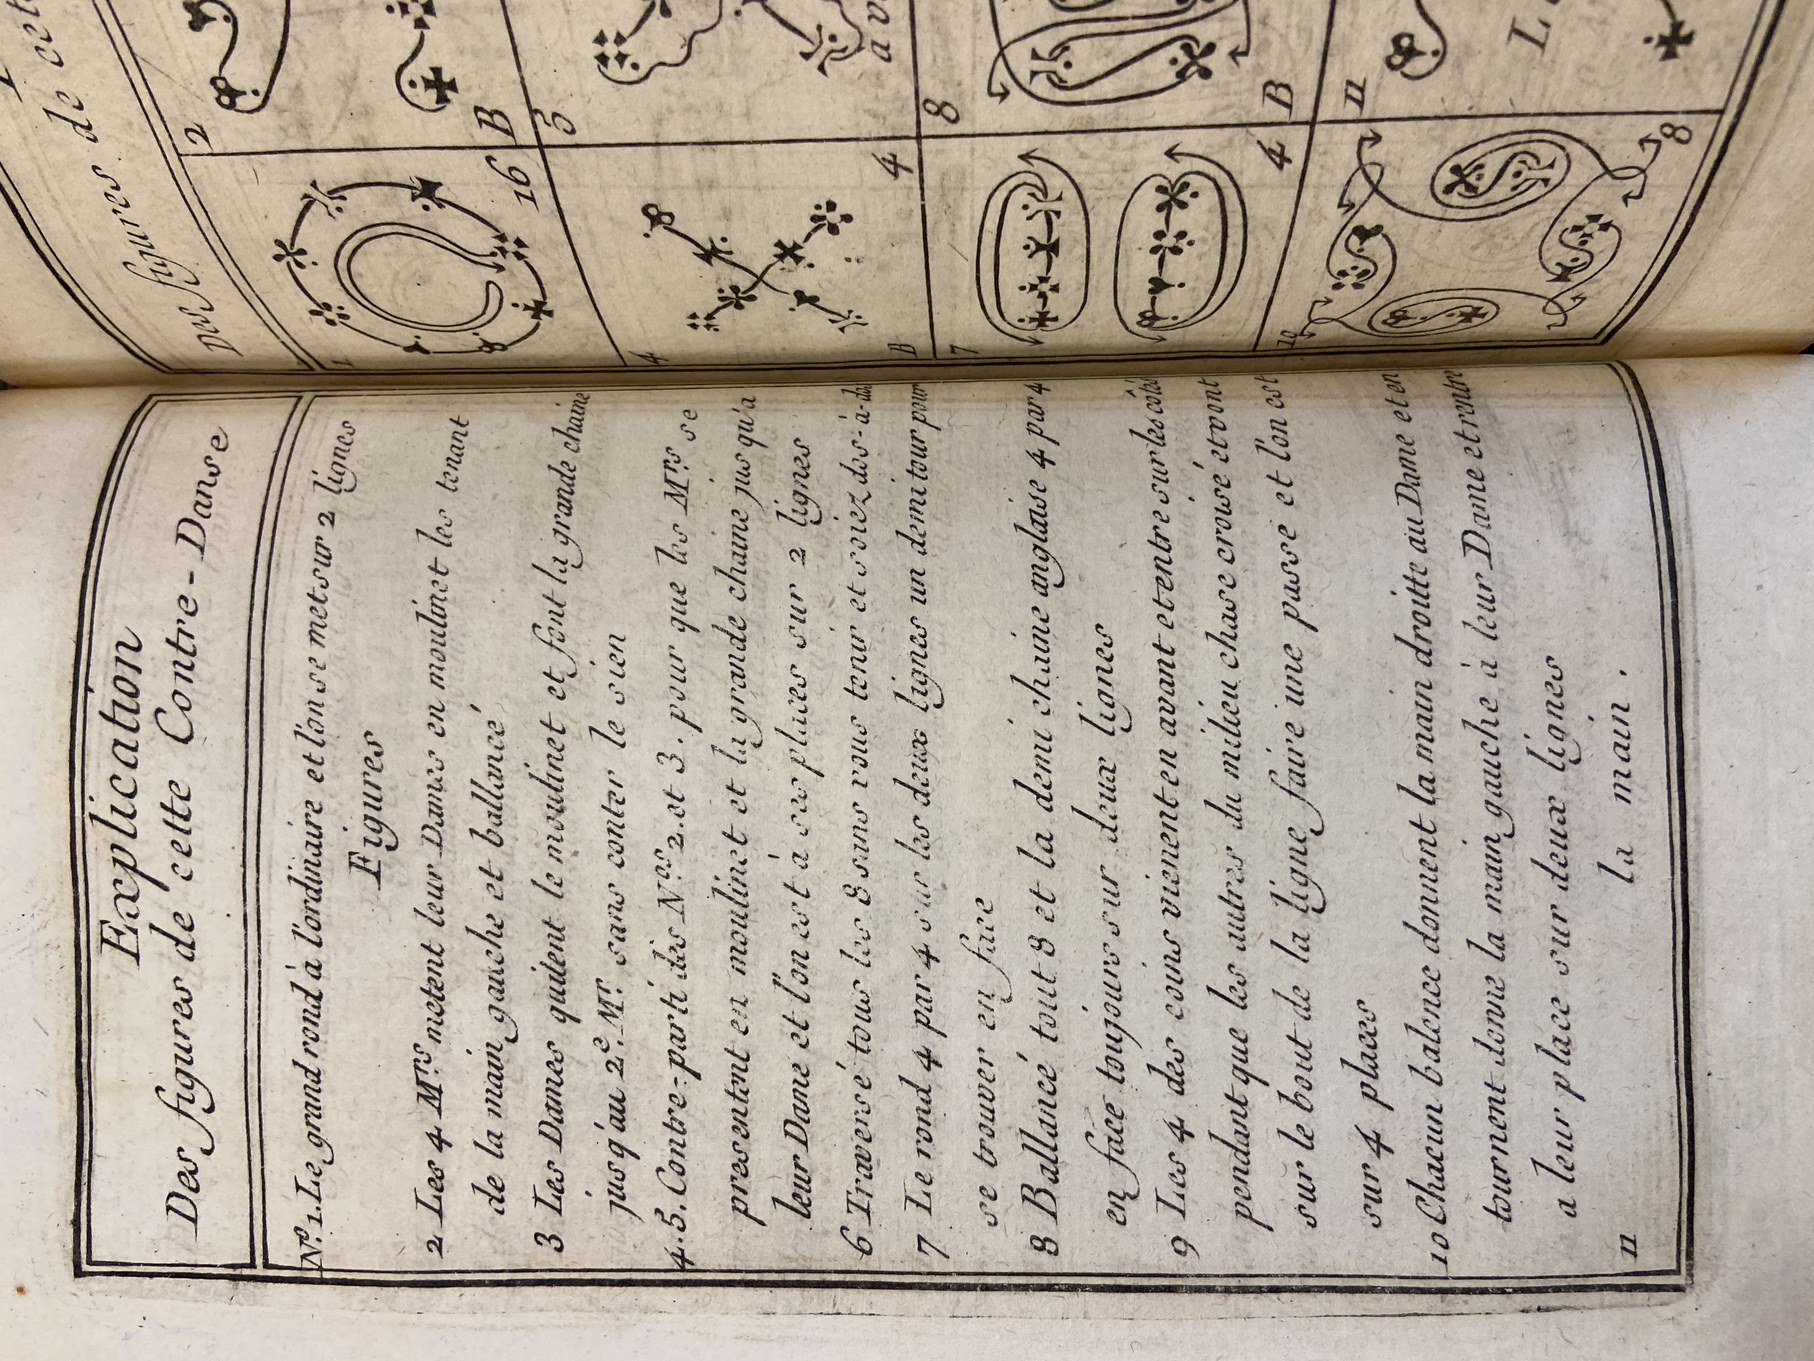 Explication
Des figures de cette Contre-Danse
Nº.1. Le grand rond à l'ordinaire et l'on se met sur 2 lignes
Figures
2 Les 4 Mrs. metent leur Dames en moulinet les tenant
de la main gauche et ballancé
3 Les Dames quitent le moulinet et font la grande chaine
jusq'au 2e. Mr. sans conter le sien
4.5. Contre-parti des Nos. 2. et 3. pour que les Mrs. se
presentent en moulinet et la grande chaine jusqu'a
leur Dame et l'on est à ses places sur 2 lignes
6 Traversé tous les 8 sans vous tenir et soiez dos-à-dos
7 Le rond 4 par 4 sur les deux lignes un demi tour pour
se trouver en face
8 Ballancé tout 8 et la demi chaine anglaise 4 par 4
en face toujours sur deux lignes
9 Les 4 des coins vienent en avant et entre sur les cotés
pendant que les autres du milieu chase croisé et vont
sur le bout de la ligne faire une passe et l'on est
sur 4 places
10 Chacun balence donnent la main droitte au Dame et en
tournent donne la main gauche à leur Dame et rentre
a leur place sur deux lignes
11 la main.
Des figures de cette
1
16
2
B
4
B
4
5
a v
7
4
8
B
10
8
11
L